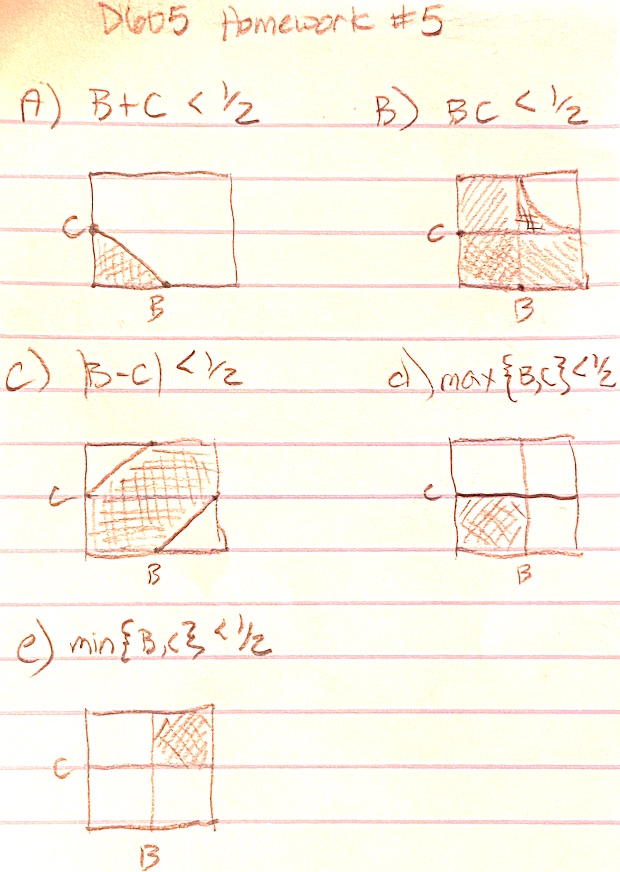 D605 Homework #5
A) B+C < 1/2
B) BC < 1/2
C
B
C
B
C) |B-C| < 1/2
d) max{B,C} < 1/2
C
B
C
B
e) min{B,C} < 1/2
C
B